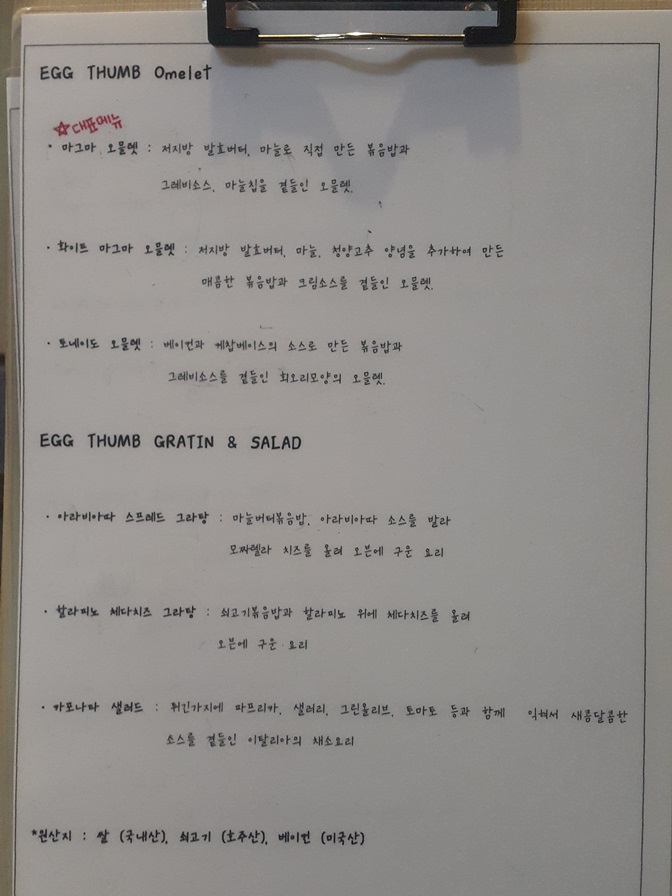 EGG THUMB Omelet
☆대표메뉴
· 마그마 오믈렛 : 저지방 발효버터, 마늘로 직접 만든 볶음밥과
그레비소스, 마늘칩을 곁들인 오믈렛.
· 화이트 마그마 오믈렛 : 저지방 발효버터, 마늘, 청양고추 양념을 추가하여 만든
매콤한 볶음밥과 크림소스를 곁들인 오믈렛.
· 토네이도 오믈렛 : 베이컨과 케찹베이스의 소스로 만든 볶음밥과
그레비소스를 곁들인 회오리모양의 오믈렛.
EGG THUMB GRATIN & SALAD
· 아라비아따 스프레드 그라탕 : 마늘버터볶음밥, 아라비아따 소스를 발라
모짜렐라 치즈를 올려 오븐에 구운 요리
· 할라피뇨 체다치즈 그라탕 : 쇠고기볶음밥과 할라피뇨 위에 체다치즈를 올려
오븐에 구운 요리
· 카포나타 샐러드 : 튀긴가지에 파프리카, 샐러리, 그린올리브, 토마토 등과 함께 익혀서 새콤달콤한
소스를 곁들인 이탈리아의 채소요리
*원산지 : 쌀 (국내산), 쇠고기 (호주산), 베이컨 (미국산)